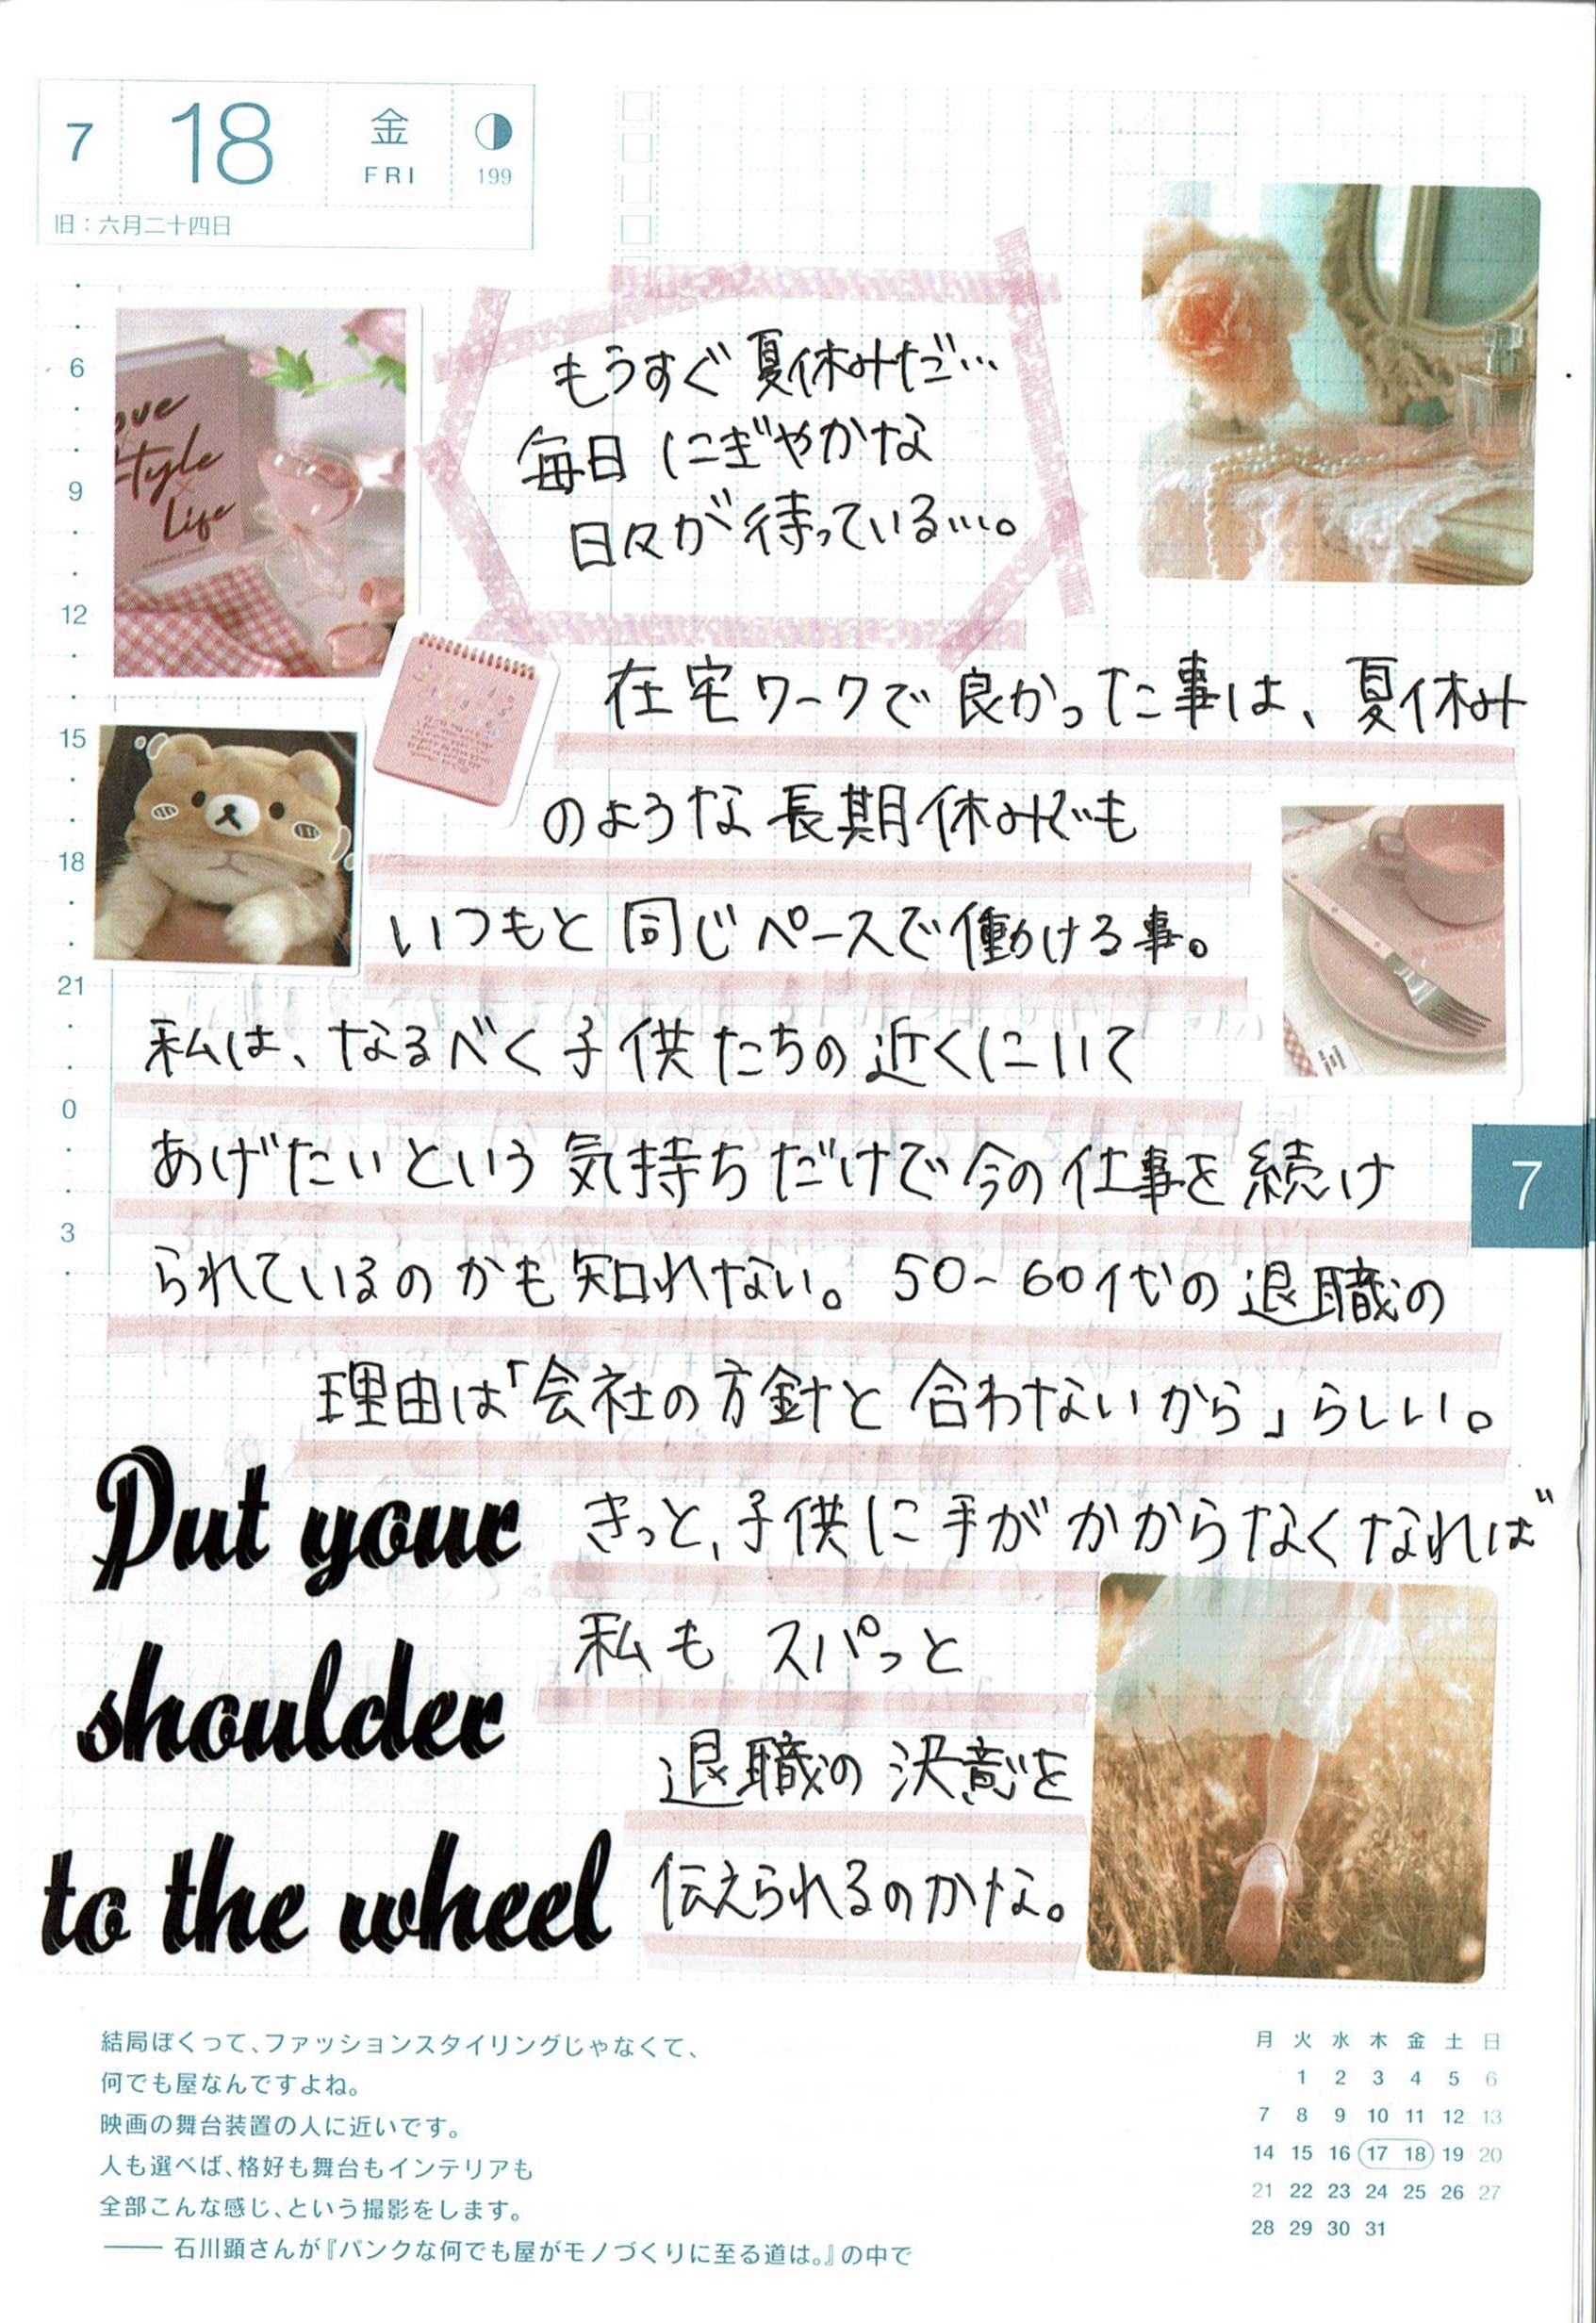 7
18
金
FRI
199
旧：六月二十四日
もうすぐ夏休みだ…
毎日にぎやかな
日々が待っている…。
6
9
12
15
18
21
0
3
Love
×
Style
×
Life
在宅ワークで良かった事は、夏休み
のような長期休みでも
いつもと同じペースで働ける事。
私は、なるべく子供たちの近くにいて
あげたいという気持ちだけで今の仕事を続け
られているのかも知れない。50~60代の退職の
理由は「会社の方針と合わないから」らしい。
きっと、子供に手がかからなくなれば
私もスパっと
退職の決意を
伝えられるのかな。
7
Put your
shoulder
to the wheel
結局ぼくって、ファッションスタイリングじゃなくて、
何でも屋なんですよね。
映画の舞台装置の人に近いです。
人も選べば、格好も舞台もインテリアも
全部こんな感じ、という撮影をします。
―― 石川顕さんが『パンクな何でも屋がモノづくりに至る道は。』の中で
月 火 水 木 金 土 日
1 2 3 4 5 6
7 8 9 10 11 12 13
14 15 16 17 18 19 20
21 22 23 24 25 26 27
28 29 30 31